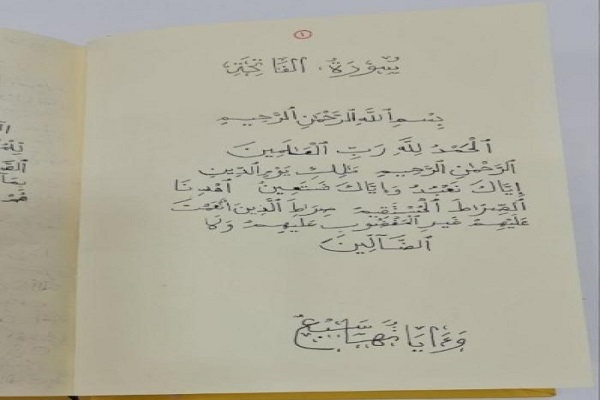 ١
سُورَةُ الفَاتِحَةِ
بِسْمِ اللَّهِ الرَّحْمَٰنِ الرَّحِيمِ
الْحَمْدُ لِلَّهِ رَبِّ الْعَالَمِينَ
الرَّحْمَٰنِ الرَّحِيمِ مَالِكِ يَوْمِ الدِّينِ
إِيَّاكَ نَعْبُدُ وَإِيَّاكَ نَسْتَعِينُ اهْدِنَا
الصِّرَاطَ الْمُسْتَقِيمَ صِرَاطَ الَّذِينَ أَنْعَمْتَ
عَلَيْهِمْ غَيْرِ الْمَغْضُوبِ عَلَيْهِمْ وَلَا
الضَّالِّينَ
وَءَايَاتُهَا سَبْعٌ